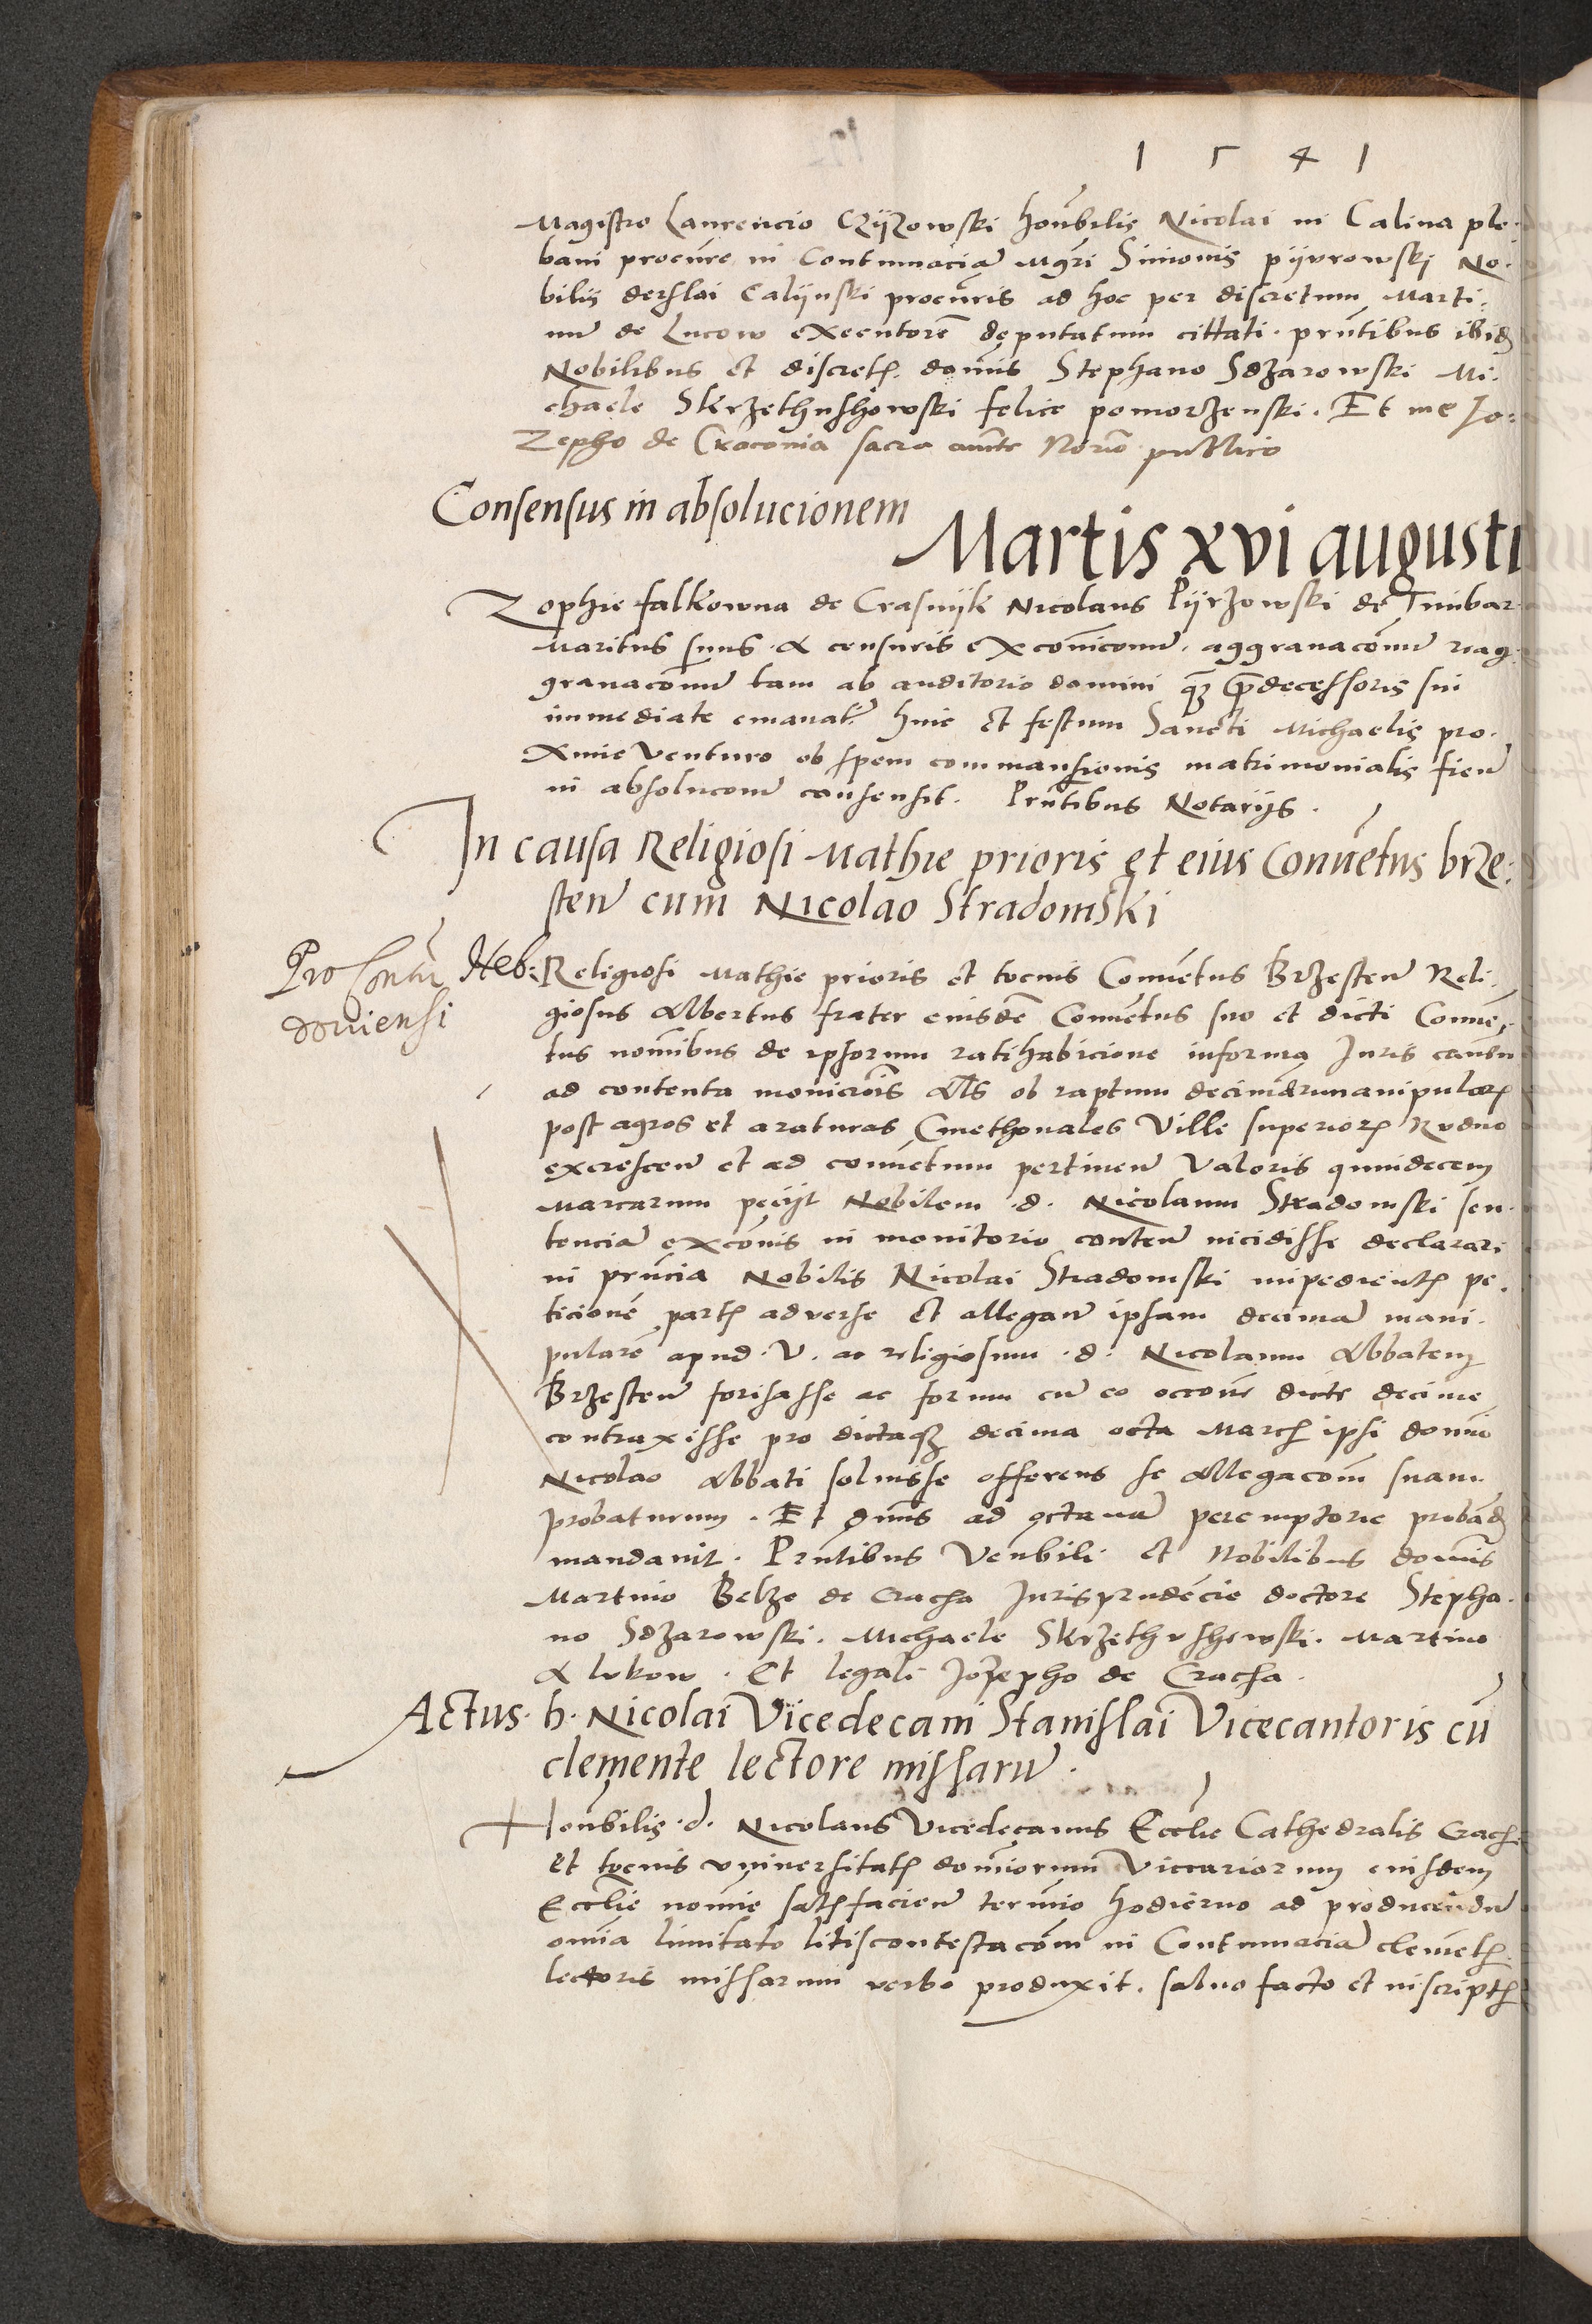 1541
Magistro Laurencio Czyzowski honbilis Nicolai in Calina ple-
bani procure in Contumacia Mgri Simonis pijwrowski No-
bilis derslai Calijnski procuris ad hoc per discretum Marti-
nu de Lucow executore deputatum cittati. pntibus ibid
Nobilibus et discret. domis Stephano Sdzarowski Mi-
chaele Skrzethushowski felice pomorzenski. Et me Jo-
zepho de Cracovia sacra auncte Norio publico
Consensus in absolucionem
Martis xvi augusti
Zophie falkowna de Crasnijk Nicolaus Pijrzowski de
maritus suus a censuris excomicomu. aggrauacomu reag-
grauacomu tam ab auditorio domini qz predecessoris sui
immediate emanat hinc et festum Sancti Michaelis pro-
xmie venturo ob spem commansionis matrimonialis fien
in absolucom consensit. Prntibus Notarijs.
In causa Religiosi Mathie prioris et eius Conuetus brze-
sten cum Nicolao Stradomski
Pro
Neb: Religiosi Mathie prioris et tocius Conuetus Brzesten Reli-
giosus Albertus frater eiusde Conuetus suo et dicti Conue-
tus nomibus de ipsorum ratihabicione in forma Juris
ad contenta moniciois als ob raptum decimarumanipular
post agros et araturas Cmethonales Ville superior Rudno
excrescen et ad conuetum pertinen Valoris quindecem
Marcarum pecijt Nobilem .d. Nicolaum Stradomski sen-
tencia excomis in monitorio conten incidisse declarari
in prncia Nobilis Nicolai Stradomski impedient pe-
ticione part aduerse et allegan ipsam decima mani-
pulare apud .V. ac religiosum .d. Nicolaum Abbatem
Brzesten forisasse ac forum cu eo occone dicte decime
contraxisse pro dictaqz decima octo March ipsi domio
Nicolao Abbati soluisse offerens se Allegacom suam
probaturum. Et dnus ad octaua peremptorie proband
mandauit. Prntibus Venbili et Nobilibus domis
Martino Belze de Cracha Jurisprudecie doctore Stepha-
no Sdzarowski. Michaele Skrzethushowski. Martino
a lukow. Et legali Jozepho de Cracha.
Actus. h. Nicolai Vicedecani Stanislai Vicecantoris cu
clemente lectore missaru.
Honbilis .d. Nicolaus Vicedecanus Ecclie Cathedralis Crach
et tocius vniuersitat domiorum Viccariorum eiusdem
Ecclie nomie satisfacien termio hodierno ad producendu
omia limitato litiscontestacom in Contumacia clemet
lectoris missarum verbo produxit. saluo facto et inscript